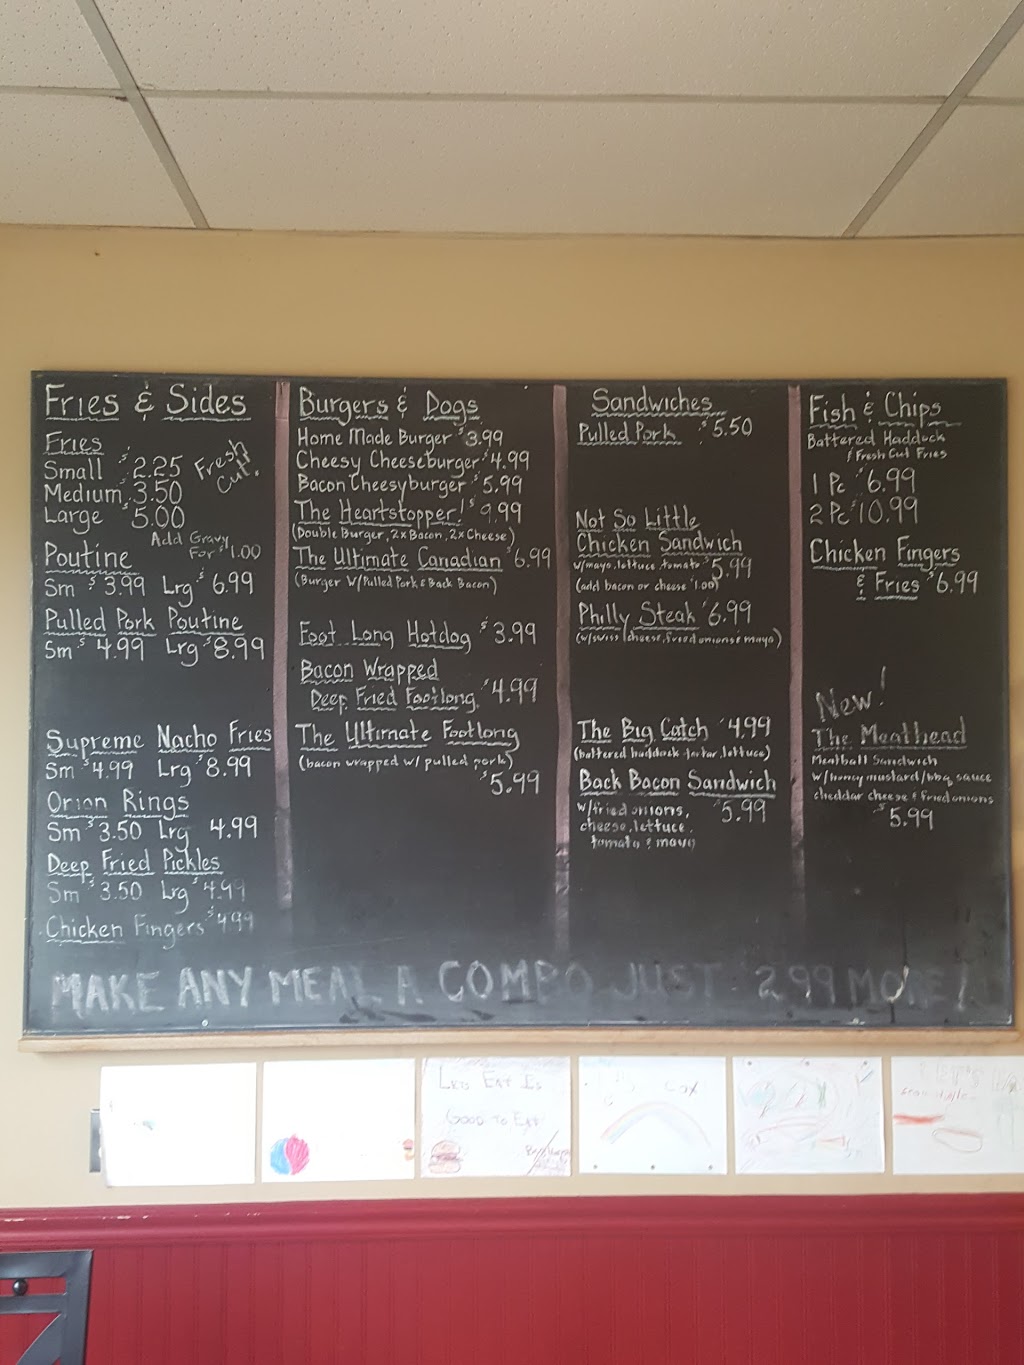 Fries & Sides
Fries
Small $2.25
Medium 3.50
Large $5.00
Fresh
Cut!
Add Gravy
For $1.00
Poutine
Sm $3.99 Lrg $6.99
Pulled Pork Poutine
Sm $4.99 Lrg $8.99
Supreme Nacho Fries
Sm $4.99 Lrg $8.99
Onion Rings
Sm $3.50 Lrg 4.99
Deep Fried Pickles
Sm $3.50 Lrg $4.99
Chicken Fingers $4.99
Burgers & Dogs
Home Made Burger $3.99
Cheesy Cheeseburger $4.99
Bacon Cheesyburger $5.99
The Heartstopper! $9.99
(Double Burger, 2x Bacon, 2x Cheese)
The Ultimate Canadian $6.99
(Burger W/Pulled Pork & Back Bacon)
Foot Long Hotdog $3.99
Bacon Wrapped
Deep Fried Footlong $4.99
The Ultimate Footlong
(bacon wrapped w/ pulled pork)
$5.99
Sandwiches
Pulled Pork $5.50
Not So Little
Chicken Sandwich
w/mayo, lettuce, tomato $5.99
(add bacon or cheese $1.00)
Philly Steak $6.99
(w/swiss cheese, fried onions & mayo)
The Big Catch $4.99
(battered haddock, tartar, lettuce)
Back Bacon Sandwich
w/fried onions, $5.99
cheese, lettuce,
tomato & mayo
Fish & Chips
Battered Haddock
& Fresh Cut Fries
1 Pc $6.99
2 Pc $10.99
Chicken Fingers
& Fries $6.99
New!
The Meathead
Meatball Sandwich
w/honey mustard/bbq sauce
cheddar cheese & fried onions
$5.99
MAKE ANY MEAL A COMBO JUST 2.99 MORE!
Lets Eat Is
Good to Eat